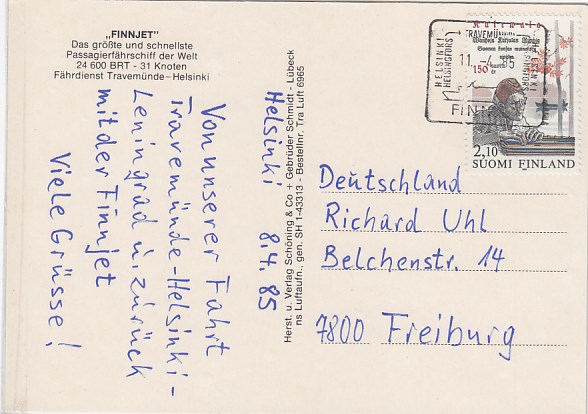 „FINNJET"
Das größte und schnellste
Passagierfährschiff der Welt
24 600 BRT - 31 Knoten
Fährdienst Travemünde–Helsinki
Helsinki 8.4.85
Von unserer Fahrt
Travemünde-Helsinki-
Leningrad u. zurück
mit der Finnjet
Viele Grüsse!
Herst. u. Verlag Schöning & Co + Gebrüder Schmidt - Lübeck
ns Luftaufn., gen. SH 1-43313 - Bestellnr. Tra Luft 6965
HELSINKI
HELSINGFORS
TRAVEMÜ
11.-4.
85
FIN
Kalewala
150
2,10
SUOMI FINLAND
Deutschland
Richard Uhl
Belchenstr. 14
7800 Freiburg